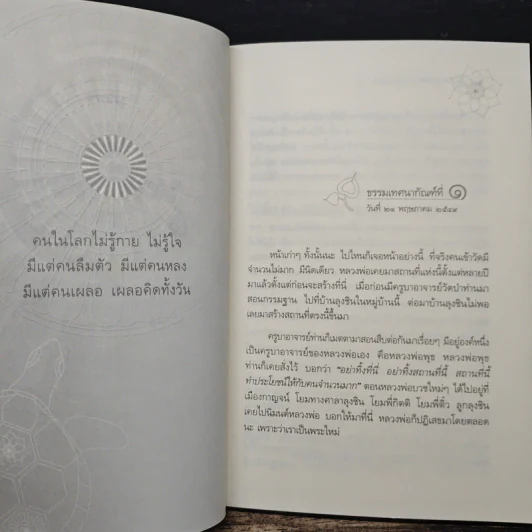 คนในโลกไม่รู้กาย ไม่รู้ใจ
มีแต่คนลืมตัว มีแต่คนหลง
มีแต่คนเผลอ เผลอคิดทั้งวัน
ธรรมเทศนากัณฑ์ที่ ๑
วันที่ ๒๑ พฤษภาคม ๒๕๔๙
หน้าเก่าๆ ทั้งนั้นนะ ไปไหนก็เจอหน้าอย่างนี้ ที่จริงคนเข้าวัดมี
จำนวนไม่มาก มีนิดเดียว หลวงพ่อเคยมาสถานที่แห่งนี้ตั้งแต่หลายปี
มาแล้วตั้งแต่ก่อนจะสร้างที่นี่ เมื่อก่อนมีครูบาอาจารย์วัดป่าท่านมา
สอนกรรมฐาน ไปที่บ้านลุงชินในหมู่บ้านนี้ ต่อมาบ้านลุงชินไม่พอ
เลยมาสร้างสถานที่ตรงนี้ขึ้นมา
ครูบาอาจารย์ท่านก็เมตตามาสอนสืบต่อกันมาเรื่อยๆ มีอยู่องค์หนึ่ง
เป็นครูบาอาจารย์ของหลวงพ่อเอง คือหลวงพ่อพุธ หลวงพ่อพุธ
ท่านก็เคยสั่งไว้ บอกว่า “อย่าทิ้งที่นี่ อย่าทิ้งสถานที่นี้ สถานที่นี้
ทำประโยชน์ให้กับคนจำนวนมาก” ตอนหลวงพ่อบวชใหม่ๆ ได้ไปอยู่ที่
เมืองกาญจน์ โยมทางศาลาลุงชิน โยมพี่กิตติ โยมพี่ติ๋ว ลูกลุงชิน
เคยไปนิมนต์หลวงพ่อ บอกให้มาที่นี่ หลวงพ่อก็ปฏิเสธมาโดยตลอด
นะ เพราะว่าเราเป็นพระใหม่